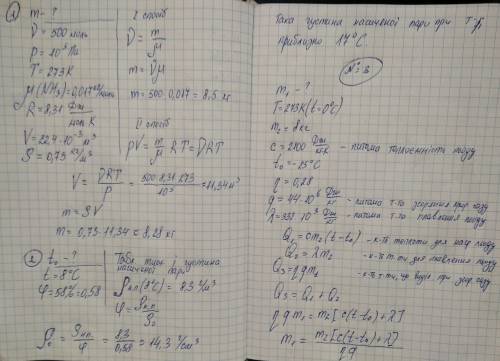 ① m - ?
ν = 500 моль
p = 10⁵ Па
T = 273К
μ(NH₃) = 0,017 кг/моль
R = 8,31 Дж/моль К
V = 22,4·10⁻³ м³
ρ = 0,73 кг/м³
I спосіб
ν = m/μ
m = νμ
m = 500·0,017 = 8,5 кг
II спосіб
pV = m/μ RT = νRT
V = νRT/p = 500·8,31·273/10⁵ = 11,34 м³
m = ρV
m = 0,73·11,34 = 8,28 кг
② t₀ - ?
t = 8°C
φ = 58% = 0,58
Табл. тиск і густина
насиченої пари
ρн.п(8°C) = 8,3 г/м³
φ = ρн.п/ρ₀
ρ₀ = ρн.п/φ = 8,3/0,58 = 14,3 г/см³
Така густина насиченої пари при
приблизно 17°C.
№ 3
m₁ - ?
T = 273К (t = 0°C)
m₂ = 8кг
c = 2100 Дж/кг·К - питома теплоємність льоду
t₀ = -15°C
η = 0,28
q = 44·10⁶ Дж/кг - питома т-та згорання прир. газу
λ = 332·10³ Дж/кг - питома т-та плавлення льоду
Q₁ = cm₂(t-t₀) - к-ть теплоти для наг. льоду
Q₂ = λm₂ - к-ть т-ти для плавлення льоду
Q₃ = qηm₁ - к-ть т-ти, що виділ. при згор. газу
Q₃ = Q₁ + Q₂
qηm₁ = m₂[c(t-t₀)+λ]
m₁ = m₂[c(t-t₀)+λ]/ηq